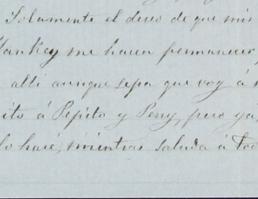 Solamente el deseo de que mis
Yankey me hacen permanecer
allí aunque sepa que voy á
ito á Pepito y Peny, pero ya
lo haré, mientras saluda á to